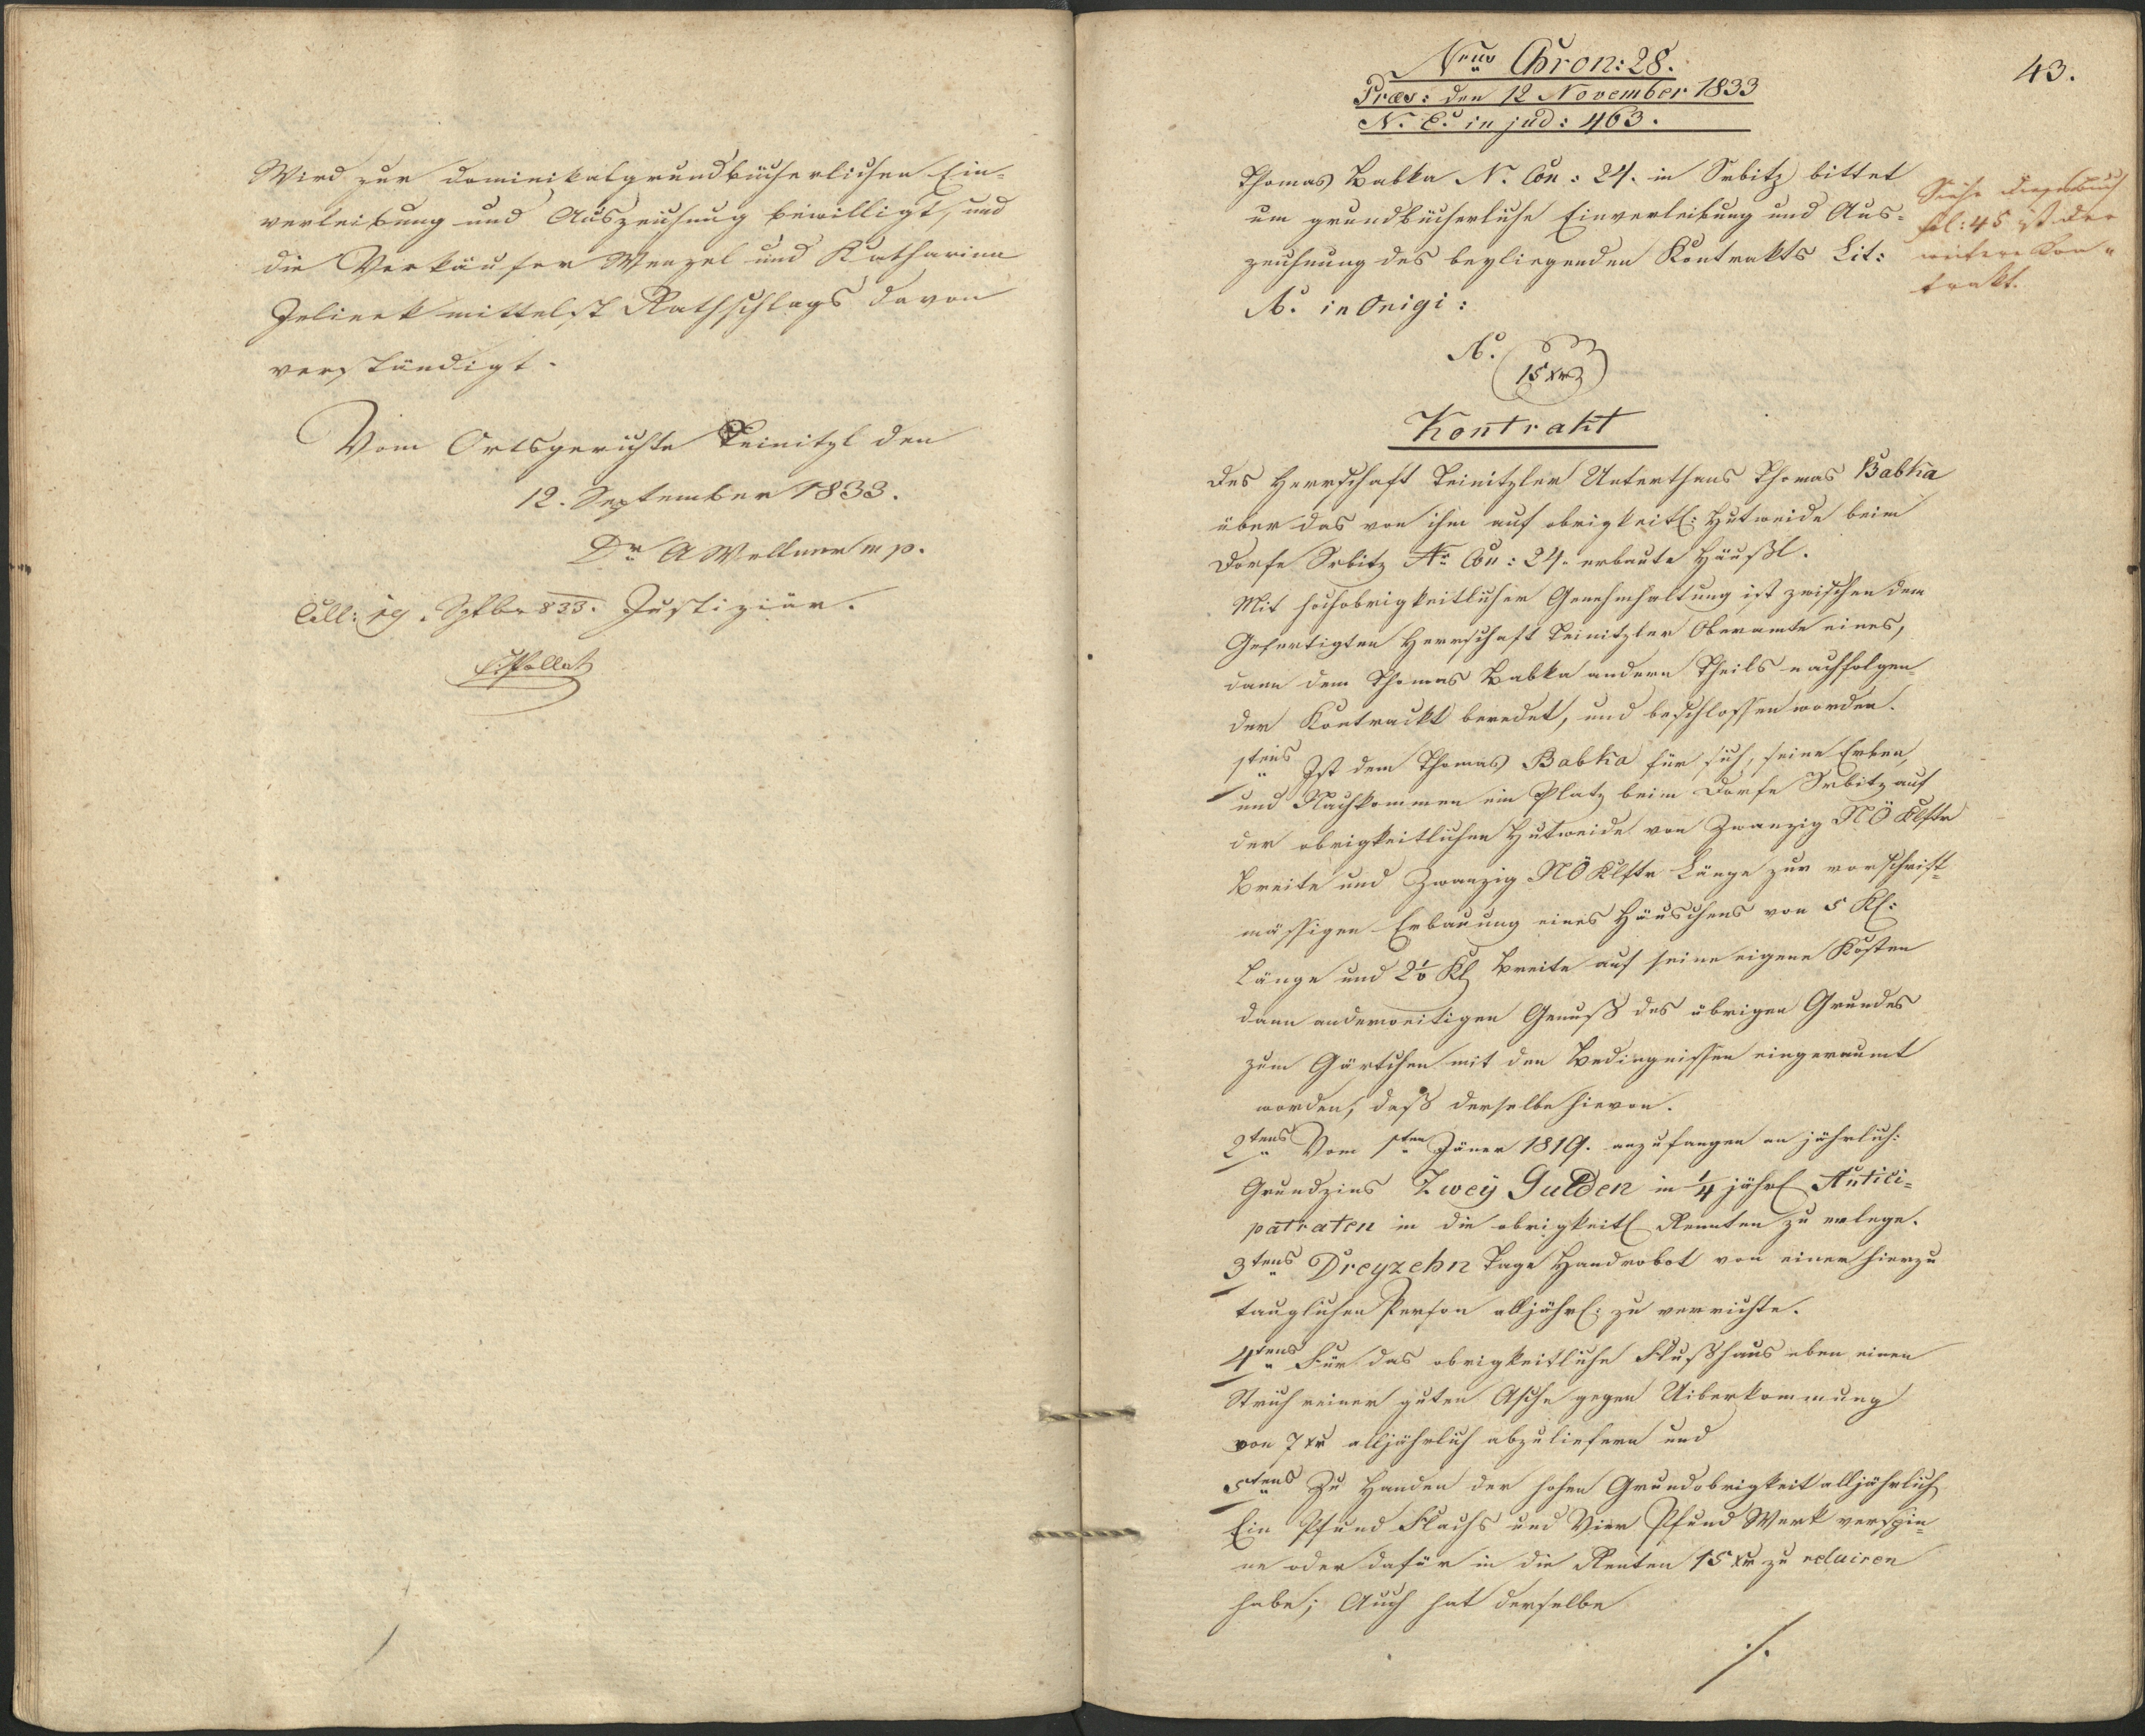 Wird zur dominikalgrundbücherlichen Ein-
verleibung und Auszeichnung bewilligt, und
die Verkäufer Wenzel und Katharina
Jelinek mittelst Rathschlags davon
verständigt.
Vom Ortsgerichte Teinitzl den
12. September 1833.
Dr A Wellner mp.
Coll: 19. Sptbr 833. Justiziär.
Pollak
Nrus Chron: 28.
Præs: den 12 November 1833
N. E. in jud: 463.
43.
Thomas Babka N. Con: 24. in Srbitz bittet
um grundbücherliche Einverleibung und Aus-
zeichnung des beyliegenden Kontrakts Lit:
A. in Origi:
Siehe
fol: 45 ist der
weitere Kon-
trakt.
A.
15 xr
Kontrakt
des Herrschaft Teinitzler Unterthans Thomas Babka
über das von ihm auf obrigkeitl: Hutweide beim
Dorfe Srbitz Nr Con: 24. erbaute Häußl.
Mit hochobrigkeitlicher Genehmhaltung ist zwischen dem
Gefertigten Herrschaft Teinitzler Oberamte eines,
dann dem Thomas Babka andern Theils nachfolgen-
der Kontrackt beredet, und beschlossen worden.
1tens Ist dem Thomas Babka für sich, seine Erben,
und Nachkommen ein Platz beim Dorfe Srbitz auf
der obrigkeitlichen Hutweide von Zwanzig NÖ Klftr
Breite und Zwanzig NÖ Klftr Länge zur vorschrift-
mässigen Erbauung eines Häuschens von 5 Kl:
Länge und 2½ Kl Breite auf seine eigene Kosten
dann anderweitigen Genuß des übrigen Grundes
zum Gärtchen mit den Bedingnissen eingeraumt
worden, daß derselbe hievon.
2tens Vom 1ten Jäner 1819. anzufangen an jährlich:
Grundzins Zwey Gulden in ¼ jährl Antici-
patraten in die obrigkeitl Rennten zu erlege.
3tens Dreyzehn Tage Handrobot von einer hierzu
tauglichen Person alljährl: zu verrichte.
4tens Für das obrigkeitliche Flußhaus eben einen
Strich reiner guten Asche gegen Uiberkommung
von 7 xr alljährlich abzuliefern und
5tens Zu Handen der hohen Grundobrigkeit alljährlich
Ein Pfund Flachs und Vier Pfund Werk verspin-
ne oder dafür in die Renten 15 xr zu reluiren
habe; Auch hat derselbe
./.